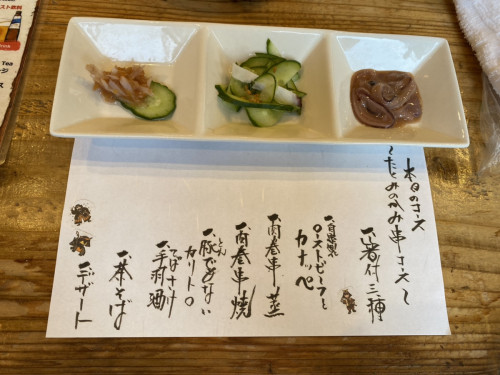 本日のコース
〜たとみのかみ串コース〜
一、箸付三種
一、自家製
ローストビーフと
カナッペ
一、肉巻串 蒸
一、肉巻串 焼
一、豚でもない
とん
カリトロ
一、手羽酒
てばさけ
一、茶そば
一、デザート
スト飲料
Tea